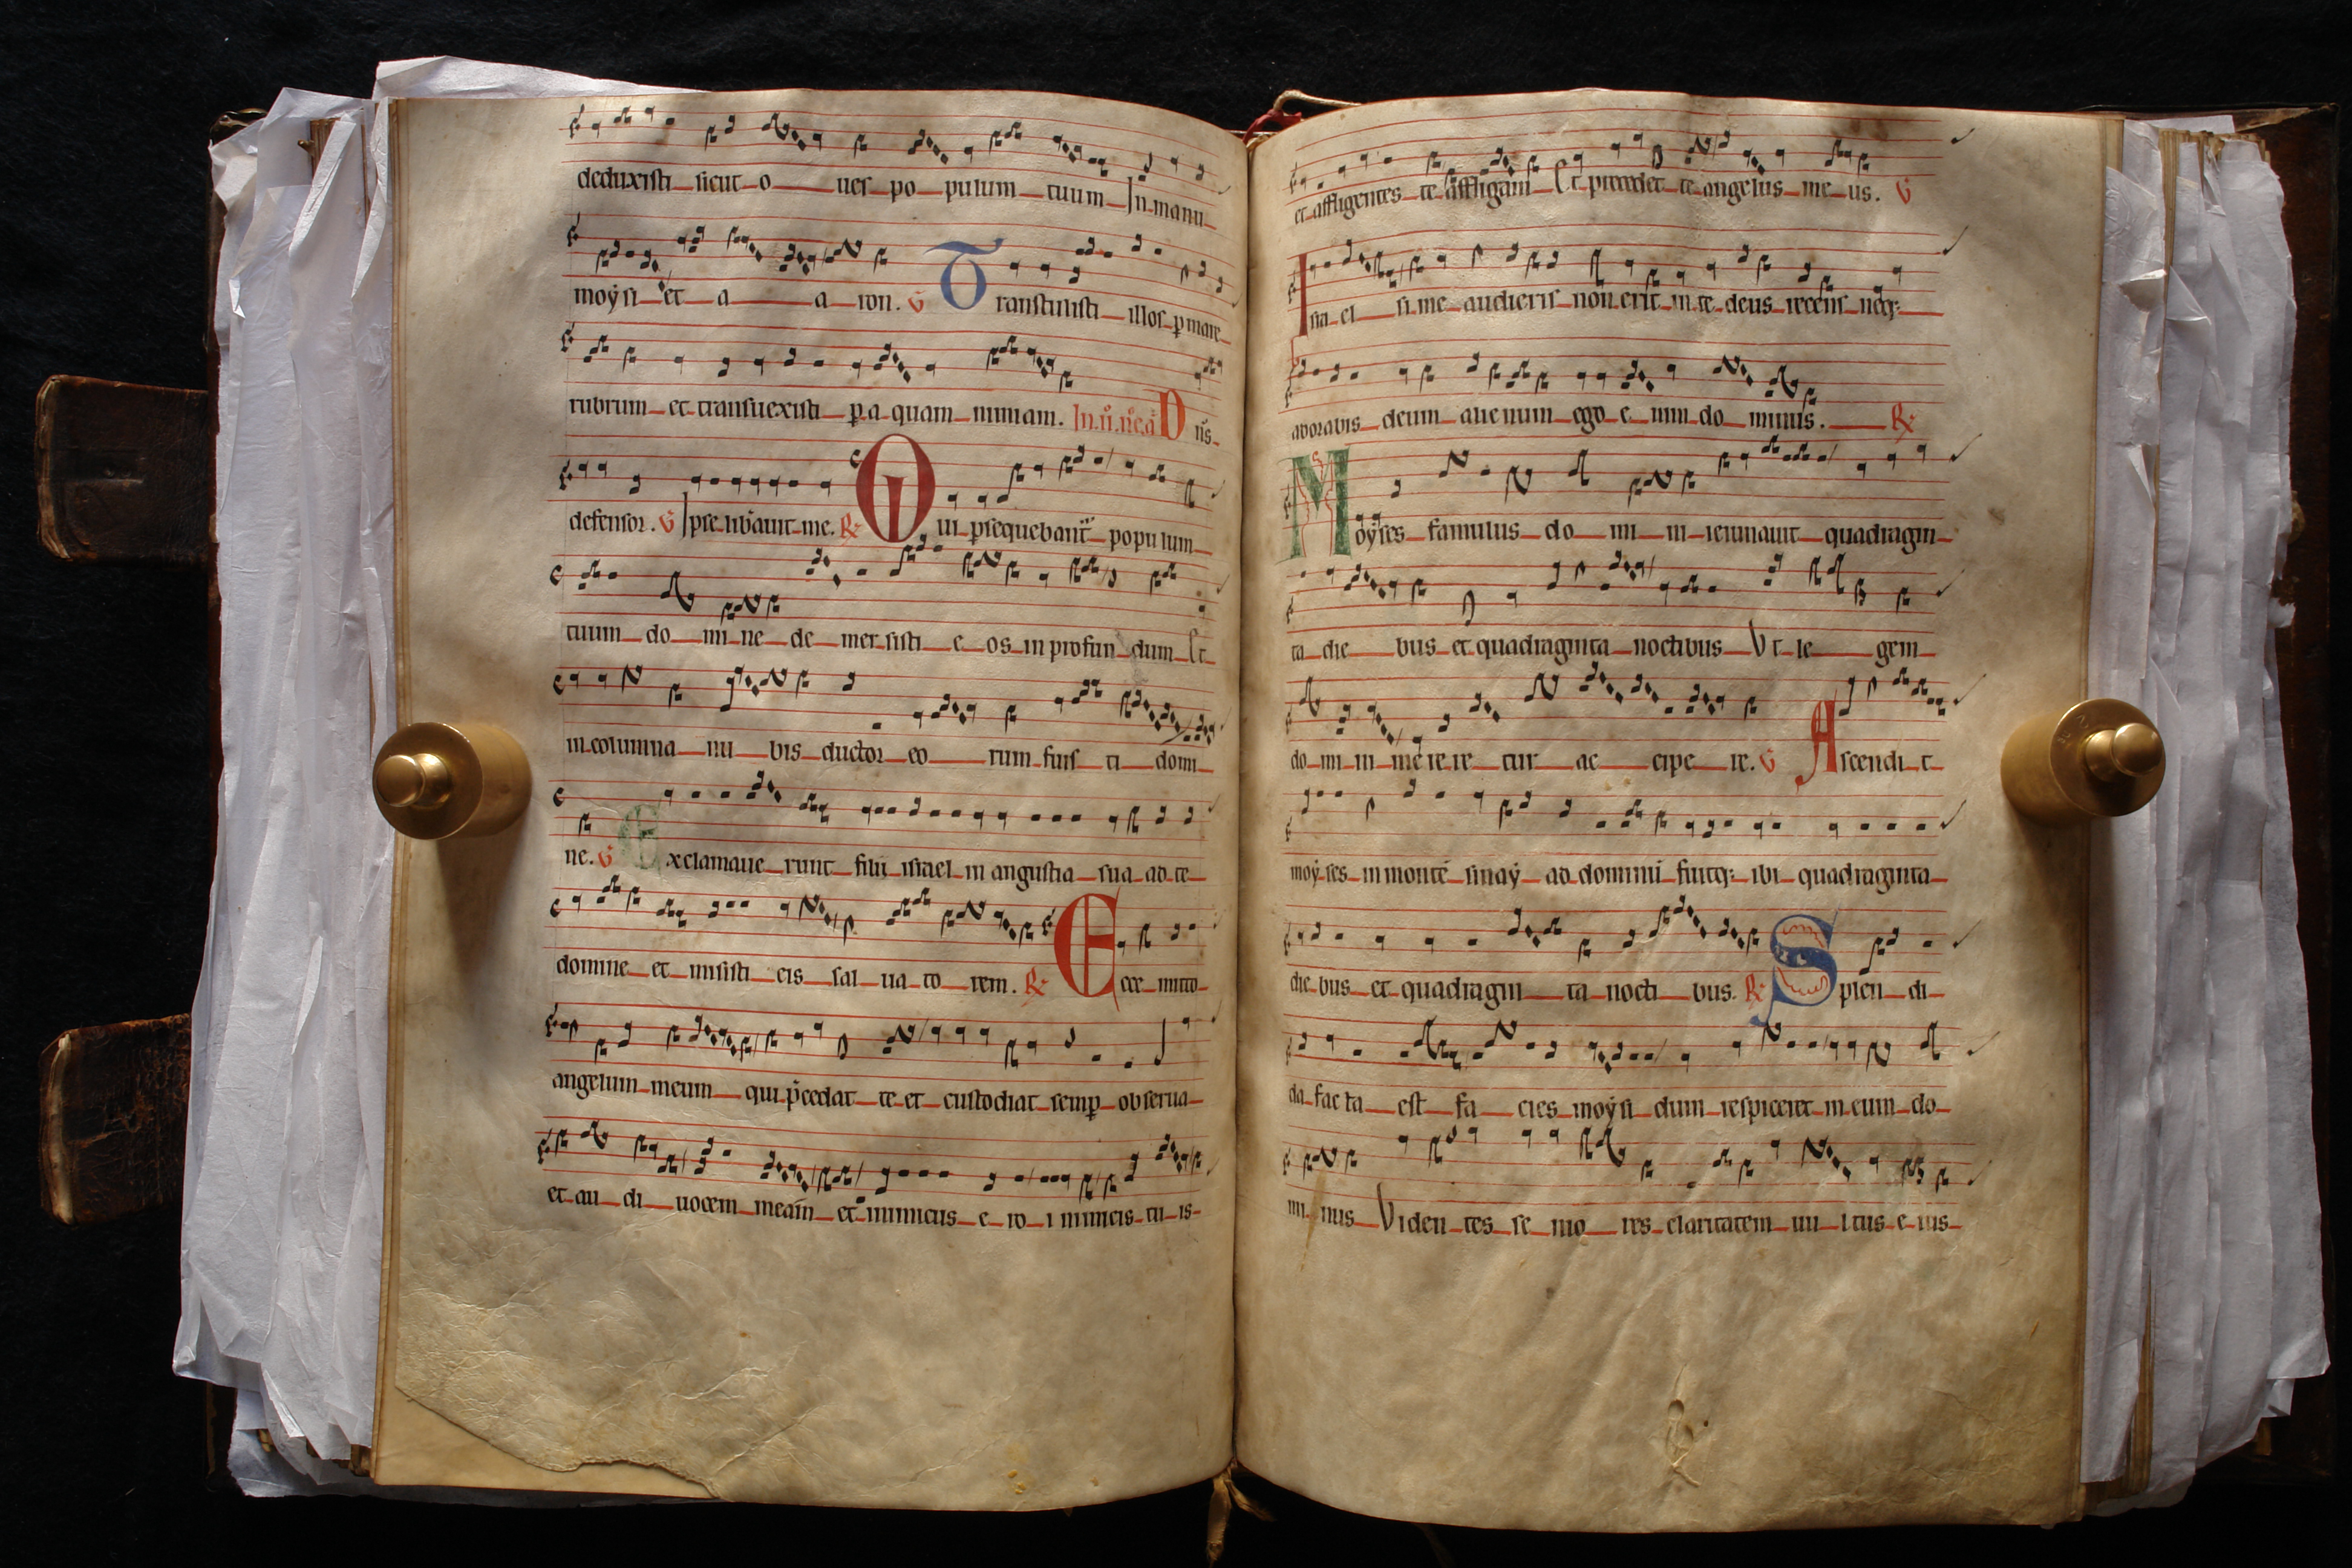 deduxisti sicut o ues po pulum tuum In manu
moÿsi et a a ron. V Transtulisti illos p mare
rubrum et transuexisti p a quam nimiam. In u. ne. a Dns
defensor. V Ipse libauit me. R Qui psequebant populum
tuum do mi ne de mer sisti e os in profun dum Et
in columna nu bis ductor eo rum fuis ti domi
ne. V Exclamaue runt filii israel in angustia sua ad te
domine et misisti eis sal ua to rem. R Ecce mitto
angelum meum qui pcedat te et custodiat semp obserua
et au di uocem meam et inimicus e ro i nimicis tu is
et affligentes te affligam Et precedet te angelus me us. V
Isra el si me audieris non erit in te deus recens neq;
adorabis deum alienum ego e nim do minus. R
Moÿses famulus do mi ni ieiunauit quadragin
ta die bus et quadraginta noctibus Vt le gem
do mi ni me re re tur ac cipe re. V Ascendi t
moÿ ses in monte sinaÿ ad domini fuitq; ibi quadraginta
die bus et quadragin ta nocti bus. R Splen di
da fac ta est fa cies moÿsi dum respiceret in eum do
mi nus Viden tes se nio res claritatem uu ltus e ius